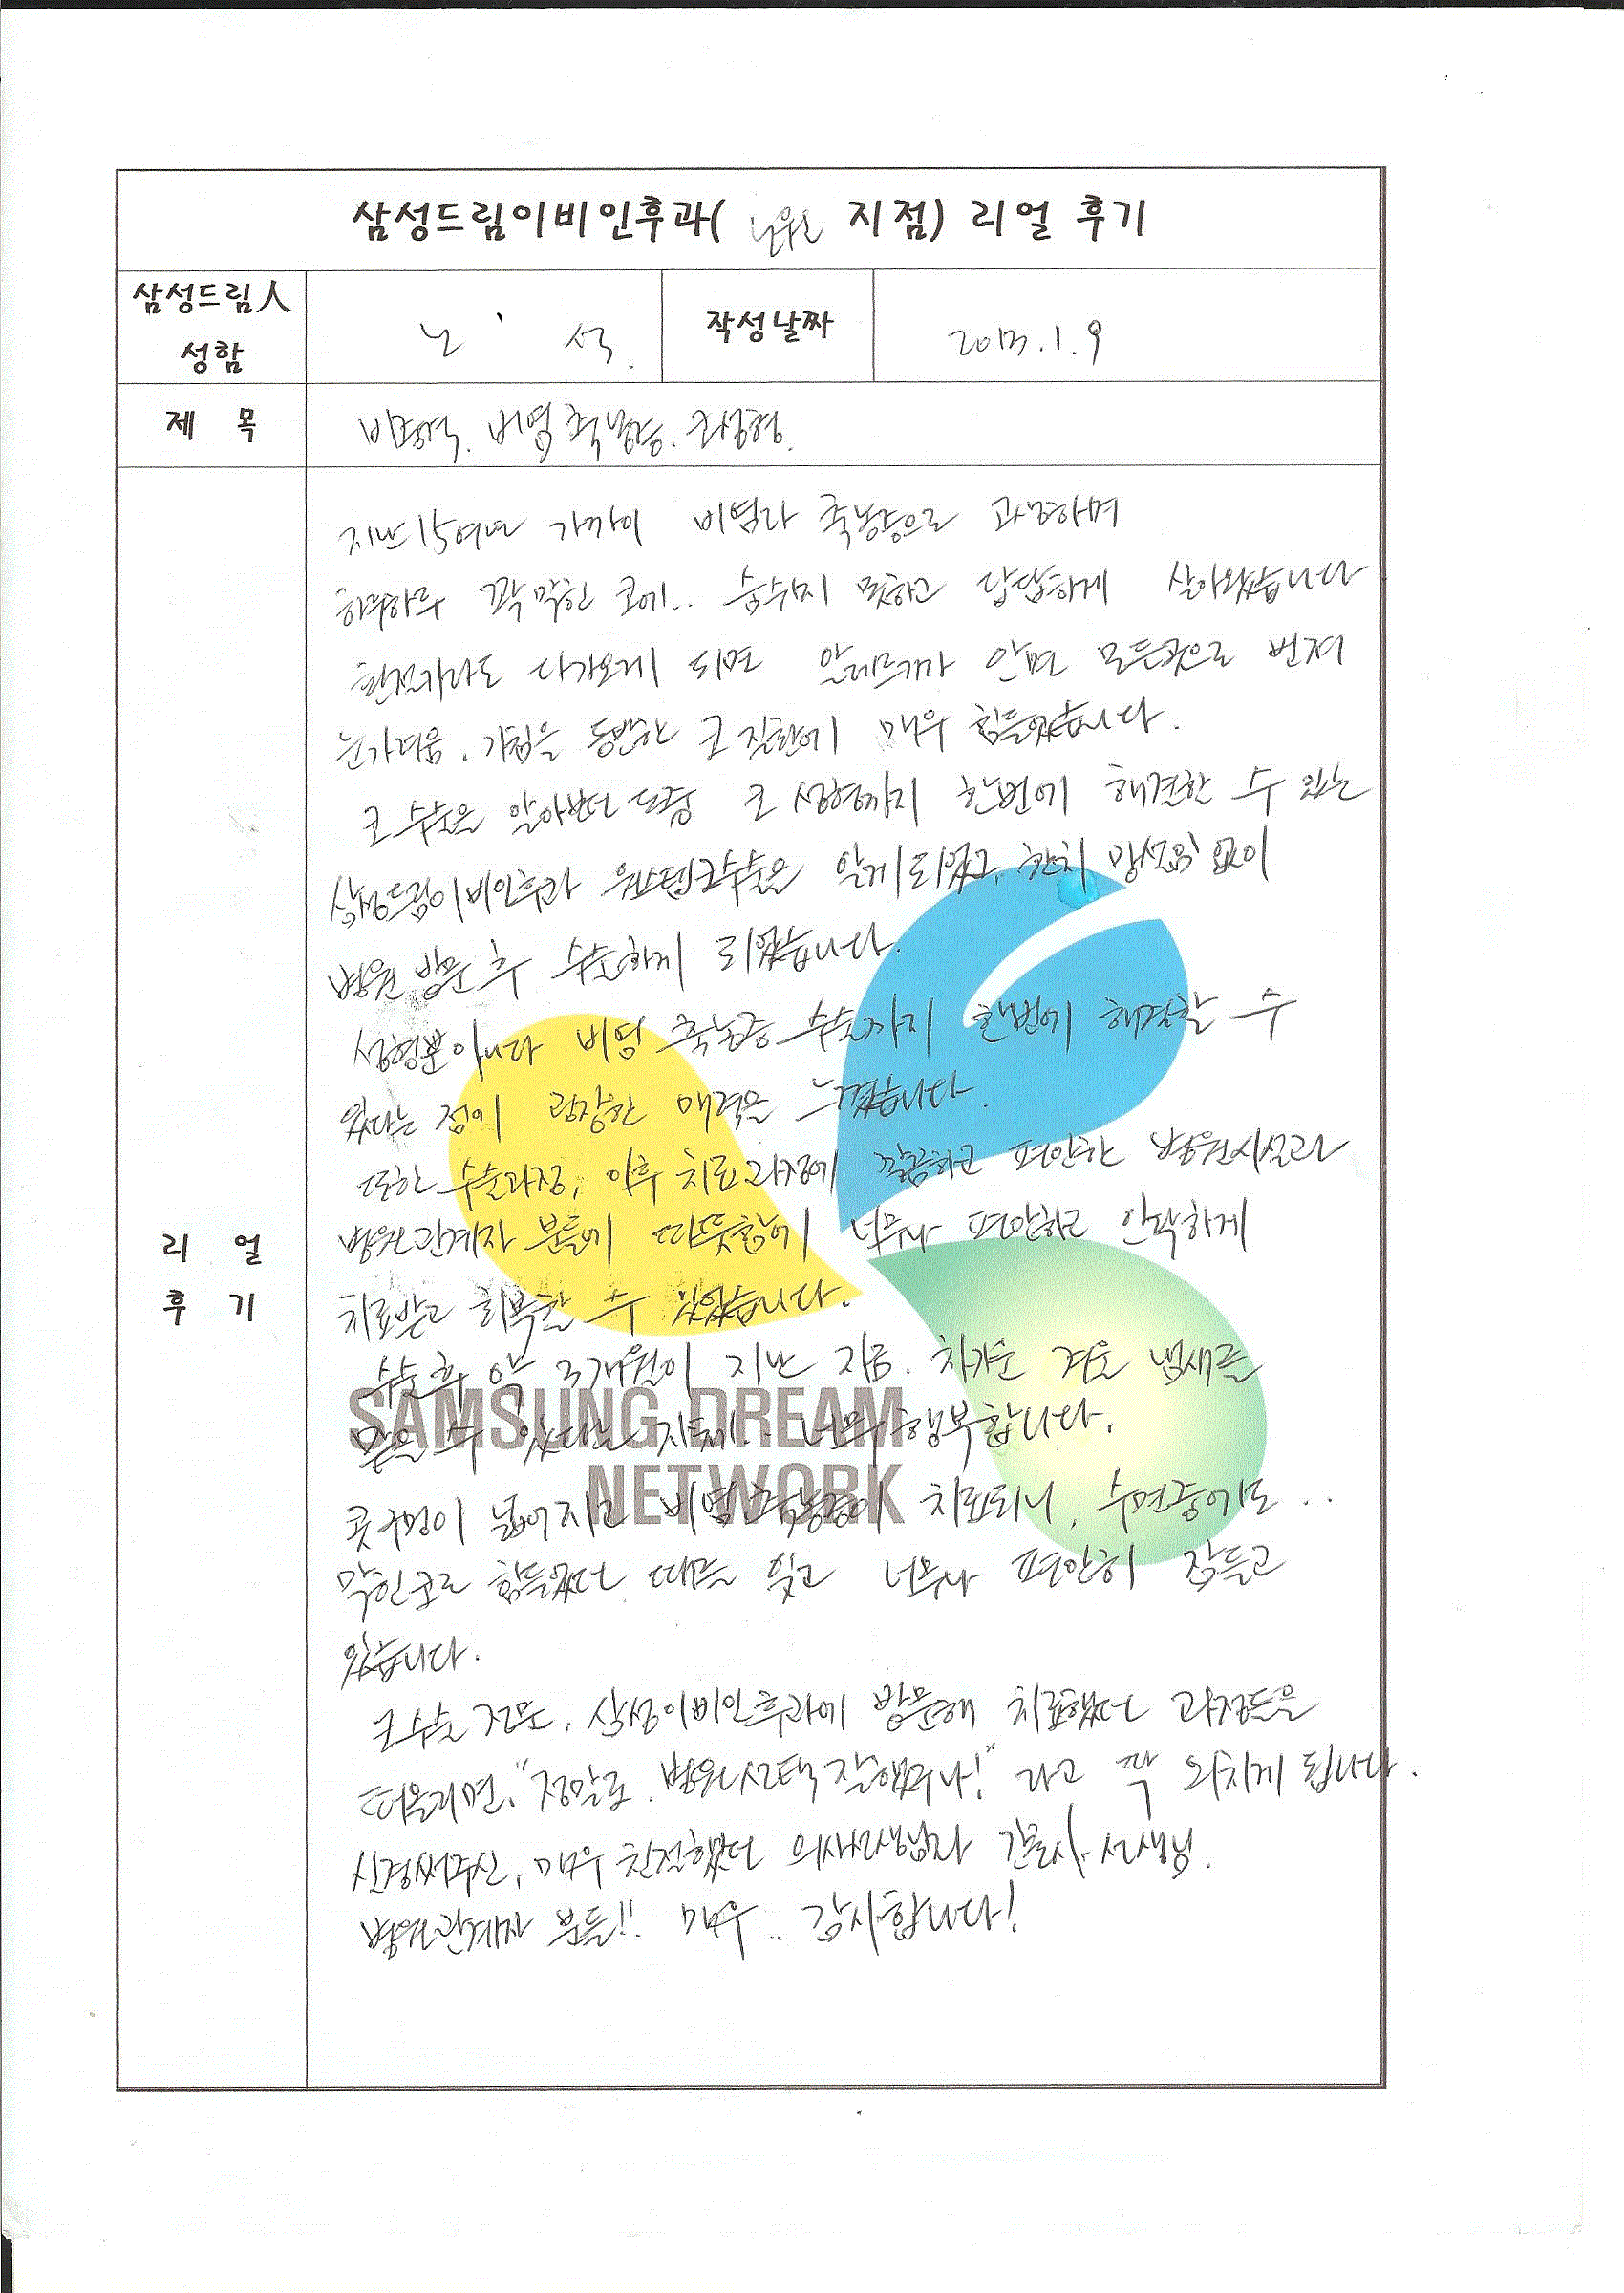 삼성드림이비인후과( 노원 지점) 리얼 후기
삼성드림人
성함
노 석.
작성날짜
2013.1.9
제 목
비중격. 비염 축농증. 코성형.
지난 15여년 가까이 비염과 축농증으로 고생하며
하루하루 꽉 막힌 코에.. 숨쉬지 못하고 답답하게 살아왔습니다
환절기라도 다가오게 되면 알레르기가 안면 모든곳으로 번져
눈가려움. 기침을 동반한 코 질환에 매우 힘들었습니다.
코 수술을 알아보던 도중 코 성형까지 한번에 해결할 수 있는
삼성드림이비인후과 원스텝코수술을 알게되었고, 한치 망설임 없이
병원 방문 후 수술하게 되었습니다.
성형뿐 아니라 비염 축농증 수술까지 한번에 해결할 수
있다는 점이 굉장한 매력을 느꼈습니다.
또한 수술과정, 이후 치료 과정에 깔끔하고 편안한 병원시설과
병원관계자 분들에 따뜻함에 너무나 편안하고 안락하게
치료받고 회복할 수 있었습니다.
수술 후 약 3개월이 지난 지금. 차가운 겨울 냄새를
맡을 수 있다는 자체.. 너무 행복합니다.
콧구멍이 넓어지고 비염축농증이 치료되니, 수면중에도 ..
막힌코로 힘들었던 때를 잊고 너무나 편안히 잠들고
있습니다.
코수술 전문, 삼성이비인후과에 방문해 치료했던 과정들을
떠올리면, "정말로. 병원선택 잘했구나!" 라고 딱 외치게 됩니다.
신경써주신, 매우 친절했던 의사선생님과 간호사 선생님.
병원관계자 분들!! 매우.. 감사합니다!
리 얼
후 기
SAMSUNG DREAM
NETWORK